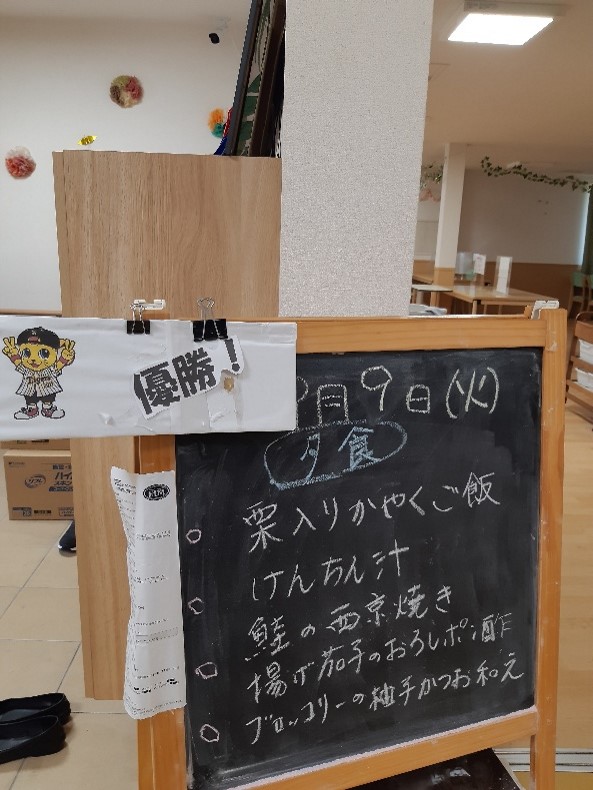 優勝!
月9日(火)
夕食
栗入りかやくご飯
けんちん汁
鮭の西京焼き
揚げ茄子のおろしポン酢
ブロッコリーの柚子かつお和え